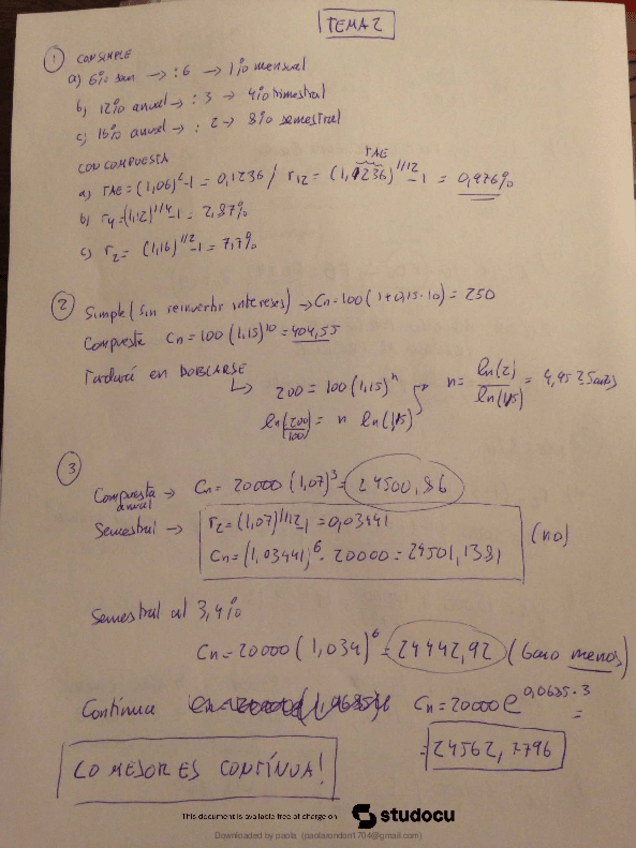 TEMA 2
① CON SIMPLE
a) 6% sem → :6 → 1% mensual
b) 12% anual → :3 → 4% trimestral
c) 16% anual → : 2 → 8% semestral
CON COMPUESTA
TAE
a) TAE = (1,06)²-1 = 0,1236 / r12 = (1,1236)^1/12 -1 = 0,976%
b) r4 = (1,12)^1/4 -1 = 2,87%
c) r2 = (1,16)^1/2 -1 = 7,7%
② Simple (sin reinvertir intereses) → Cn = 100 (1+0,15·10) = 250
Compuesta Cn = 100 (1,15)^10 = 404,55
Tardará en DOBLARSE
↳ 200 = 100 (1,15)^n n = ln(2)/ln(1,15) = 4,9525 años
ln(200/100) = n ln(1,15)
③
Compuesta anual → Cn = 20000 (1,07)^3 = 24500,86
Semestral → r2 = (1,07)^1/2 -1 = 0,03441
Cn = (1,03441)^6 · 20000 = 24501,1381 (no)
Semestral al 3,4%
Cn = 20000 (1,034)^6 = 24442,92 (Gano menos)
Continua Cn = 20000 e^0,0685·3 =
= 24562,7796
LO MEJOR ES CONTÍNUA!
This document is available free of charge on studocu
Downloaded by paola (paolarondon1704@gmail.com)